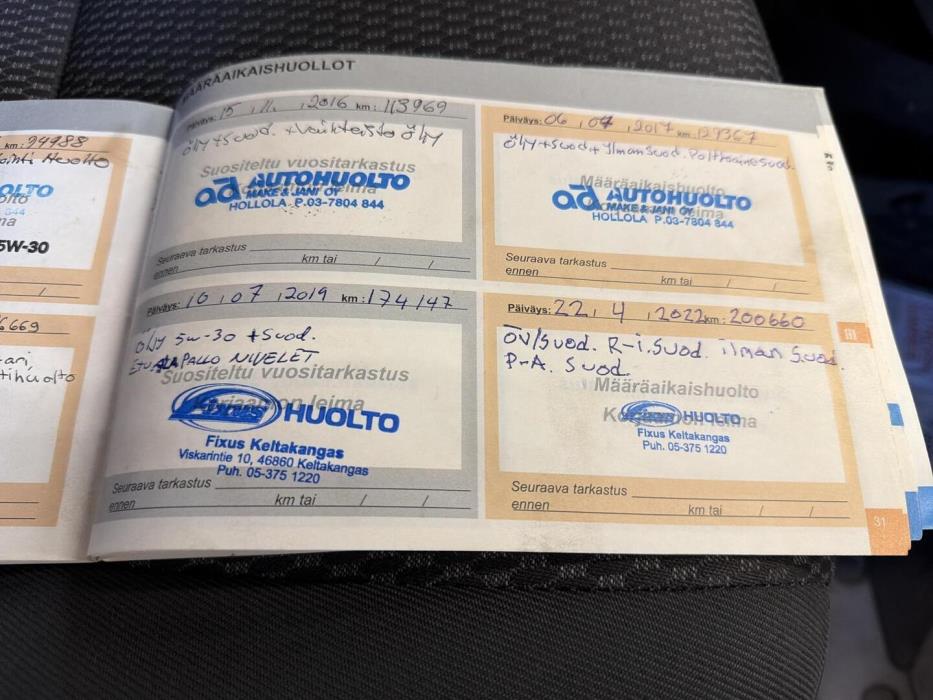 MÄÄRÄAIKAISHUOLLOT
km: 94988
Huolto
OLTO
844
5W-30
6669
Päiväys: 15 . 11 . 2016 km: 113969
Öljy+Suod. + Vaihteisto Öljy
Suositeltu vuositarkastus
ad AUTOHUOLTO
MAKE & JANI OY
HOLLOLA P.03-7804 844
Seuraava tarkastus
ennen km tai / /
Päiväys: 06 . 07 . 2017 km 129367
Öljy+Suod+Ilman Suod. Polttoaine Suod.
Määräaikaishuolto
ad AUTOHUOLTO
MAKE & JANI OY
HOLLOLA P.03-7804 844
Seuraava tarkastus
ennen km tai / /
Päiväys: 16 . 07 . 2019 km: 174147
Öljy 5w-30 + Suod.
ETU ALAPALLO NIVELET
Suositeltu vuositarkastus
Korjaamon leima
Fixus HUOLTO
Fixus Keltakangas
Viskarintie 10, 46860 Keltakangas
Puh. 05-375 1220
Seuraava tarkastus
ennen km tai / /
Päiväys: 22 . 4 . 2022 km: 200660
ÖV/Suod. R-i.Suod. ilman Suod.
P-A. Suod.
Määräaikaishuolto
Korjaamon leima
Fixus HUOLTO
Fixus Keltakangas
Puh. 05-375 1220
Seuraava tarkastus
ennen km tai / /
31